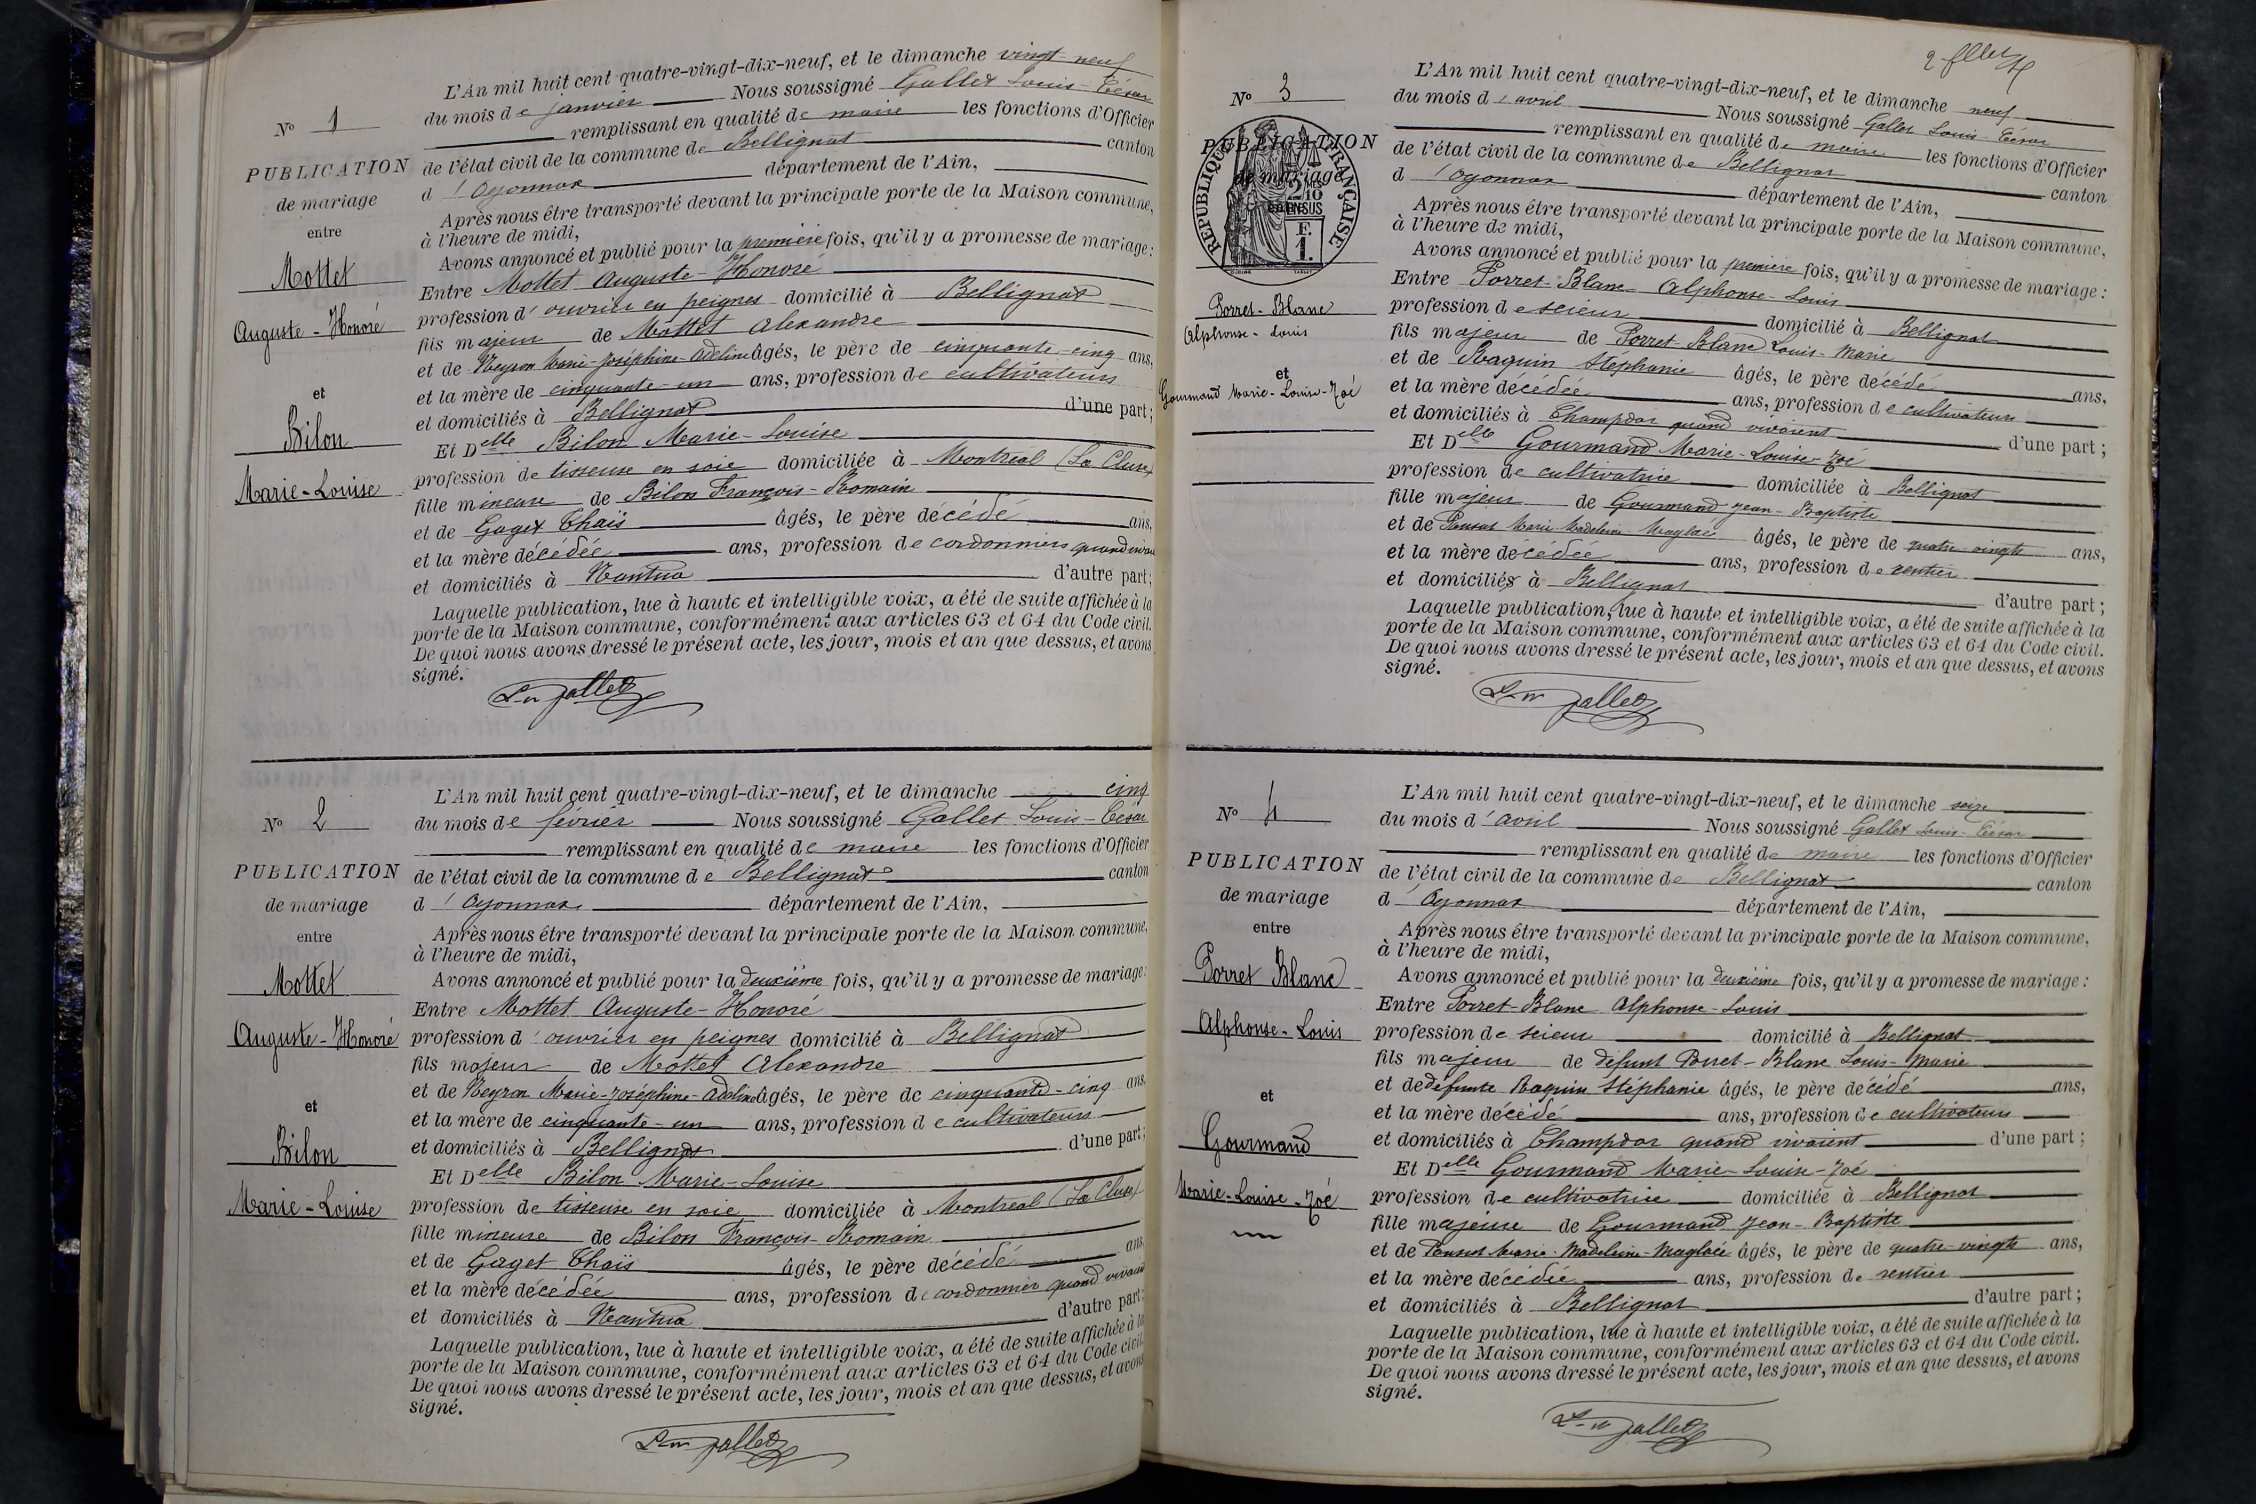 N° 1
PUBLICATION
de mariage
entre
Mottet
Auguste-Honoré
et
Bilon
Marie-Louise
L'An mil huit cent quatre-vingt-dix-neuf, et le dimanche vingt-neuf
du mois de janvier Nous soussigné Gallet Louis-César
remplissant en qualité de maire les fonctions d'Officier
de l'état civil de la commune de Bellignat canton
d'Oyonnax département de l'Ain,
Après nous être transporté devant la principale porte de la Maison commune,
à l'heure de midi,
Avons annoncé et publié pour la première fois, qu'il y a promesse de mariage:
Entre Mottet Auguste-Honoré
profession d'ouvrier en peignes domicilié à Bellignat
fils majeur de Mottet Alexandre
et de Neyron Marie-Joséphine-Adeline âgés, le père de cinquante-cinq ans,
et la mère de cinquante-un ans, profession de cultivateurs
et domiciliés à Bellignat d'une part;
Et Delle Bilon Marie-Louise
profession de tisseuse en soie domiciliée à Montréal (La Cluse)
fille mineure de Bilon François-Romain
et de Gaget Thaïs âgés, le père décédé ans,
et la mère décédée ans, profession de cordonniers quand vivai
et domiciliés à Nantua d'autre part;
Laquelle publication, lue à haute et intelligible voix, a été de suite affichée à la
porte de la Maison commune, conformément aux articles 63 et 64 du Code civil.
De quoi nous avons dressé le présent acte, les jour, mois et an que dessus, et avons
signé.
Ls Gallet
N° 2
PUBLICATION
de mariage
entre
Mottet
Auguste-Honoré
et
Bilon
Marie-Louise
L'An mil huit cent quatre-vingt-dix-neuf, et le dimanche cinq
du mois de février Nous soussigné Gallet Louis-César
remplissant en qualité de maire les fonctions d'Officier
de l'état civil de la commune de Bellignat canton
d'Oyonnax département de l'Ain,
Après nous être transporté devant la principale porte de la Maison commune,
à l'heure de midi,
Avons annoncé et publié pour la deuxième fois, qu'il y a promesse de mariage:
Entre Mottet Auguste-Honoré
profession d'ouvrier en peignes domicilié à Bellignat
fils majeur de Mottet Alexandre
et de Neyron Marie-Joséphine-Adeline âgés, le père de cinquante-cinq ans,
et la mère de cinquante-un ans, profession de cultivateurs
et domiciliés à Bellignat d'une part;
Et Delle Bilon Marie-Louise
profession de tisseuse en soie domiciliée à Montréal (La Cluse)
fille mineure de Bilon François-Romain
et de Gaget Thaïs âgés, le père décédé ans
et la mère décédée ans, profession de cordonnier quand vivai
et domiciliés à Nantua d'autre part;
Laquelle publication, lue à haute et intelligible voix, a été de suite affichée à la
porte de la Maison commune, conformément aux articles 63 et 64 du Code civil.
De quoi nous avons dressé le présent acte, les jour, mois et an que dessus, et avons
signé.
Ls Gallet
N° 3
PUBLICATION
de mariage
RÉPUBLIQUE FRANÇAISE
2/10
EN SUS
F.
1.
Porret-Blanc
Alphonse-Louis
et
Gourmand Marie-Louise-Zoé
L'An mil huit cent quatre-vingt-dix-neuf, et le dimanche neuf
du mois d'avril Nous soussigné Gallet Louis-César
remplissant en qualité de maire les fonctions d'Officier
de l'état civil de la commune de Bellignat canton
d'Oyonnax département de l'Ain,
Après nous être transporté devant la principale porte de la Maison commune,
à l'heure de midi,
Avons annoncé et publié pour la première fois, qu'il y a promesse de mariage:
Entre Porret-Blanc Alphonse-Louis
profession de scieur domicilié à Bellignat
fils majeur de Porret-Blanc Louis-Marie
et de Raquin Stéphanie âgés, le père décédé ans,
et la mère décédée ans, profession de cultivateurs
et domiciliés à Champdor quand vivaient d'une part;
Et Delle Gourmand Marie-Louise-Zoé
profession de cultivatrice domiciliée à Bellignat
fille majeur de Gourmand Jean-Baptiste
et de Marie-Madeleine âgés, le père de quatre vingts ans,
et la mère décédée ans, profession de rentier
et domiciliés à Bellignat d'autre part;
Laquelle publication, lue à haute et intelligible voix, a été de suite affichée à la
porte de la Maison commune, conformément aux articles 63 et 64 du Code civil.
De quoi nous avons dressé le présent acte, les jour, mois et an que dessus, et avons
signé.
Ls Gallet
N° 4
PUBLICATION
de mariage
entre
Porret Blanc
Alphonse-Louis
et
Gourmand
Marie-Louise-Zoé
L'An mil huit cent quatre-vingt-dix-neuf, et le dimanche seize
du mois d'avril Nous soussigné Gallet Louis-César
remplissant en qualité de maire les fonctions d'Officier
de l'état civil de la commune de Bellignat canton
d'Oyonnax département de l'Ain,
Après nous être transporté devant la principale porte de la Maison commune,
à l'heure de midi,
Avons annoncé et publié pour la deuxième fois, qu'il y a promesse de mariage:
Entre Porret-Blanc Alphonse-Louis
profession de scieur domicilié à Bellignat
fils majeur de défunt Porret-Blanc Louis-Marie
et de défunte Raquin Stéphanie âgés, le père décédé ans,
et la mère décédé ans, profession de cultivateurs
et domiciliés à Champdor quand vivaient d'une part;
Et Delle Gourmand Marie-Louise-Zoé
profession de cultivatrice domiciliée à Bellignat
fille majeure de Gourmand Jean-Baptiste
et de Marie-Madeleine âgés, le père de quatre-vingts ans,
et la mère décédée ans, profession de rentier
et domiciliés à Bellignat d'autre part;
Laquelle publication, lue à haute et intelligible voix, a été de suite affichée à la
porte de la Maison commune, conformément aux articles 63 et 64 du Code civil.
De quoi nous avons dressé le présent acte, les jour, mois et an que dessus, et avons
signé.
Ls Gallet